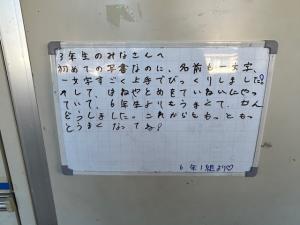 3年生のみなさんへ
初めての書写なのに、名前も一文字
一文字すごく上手でびっくりしました。
そして、はねやとめをていねいにやっ
ていて、6年生よりもうまくて、かん
どうしました。これからももっともっ
とうまくなってね!
6年1組より♡